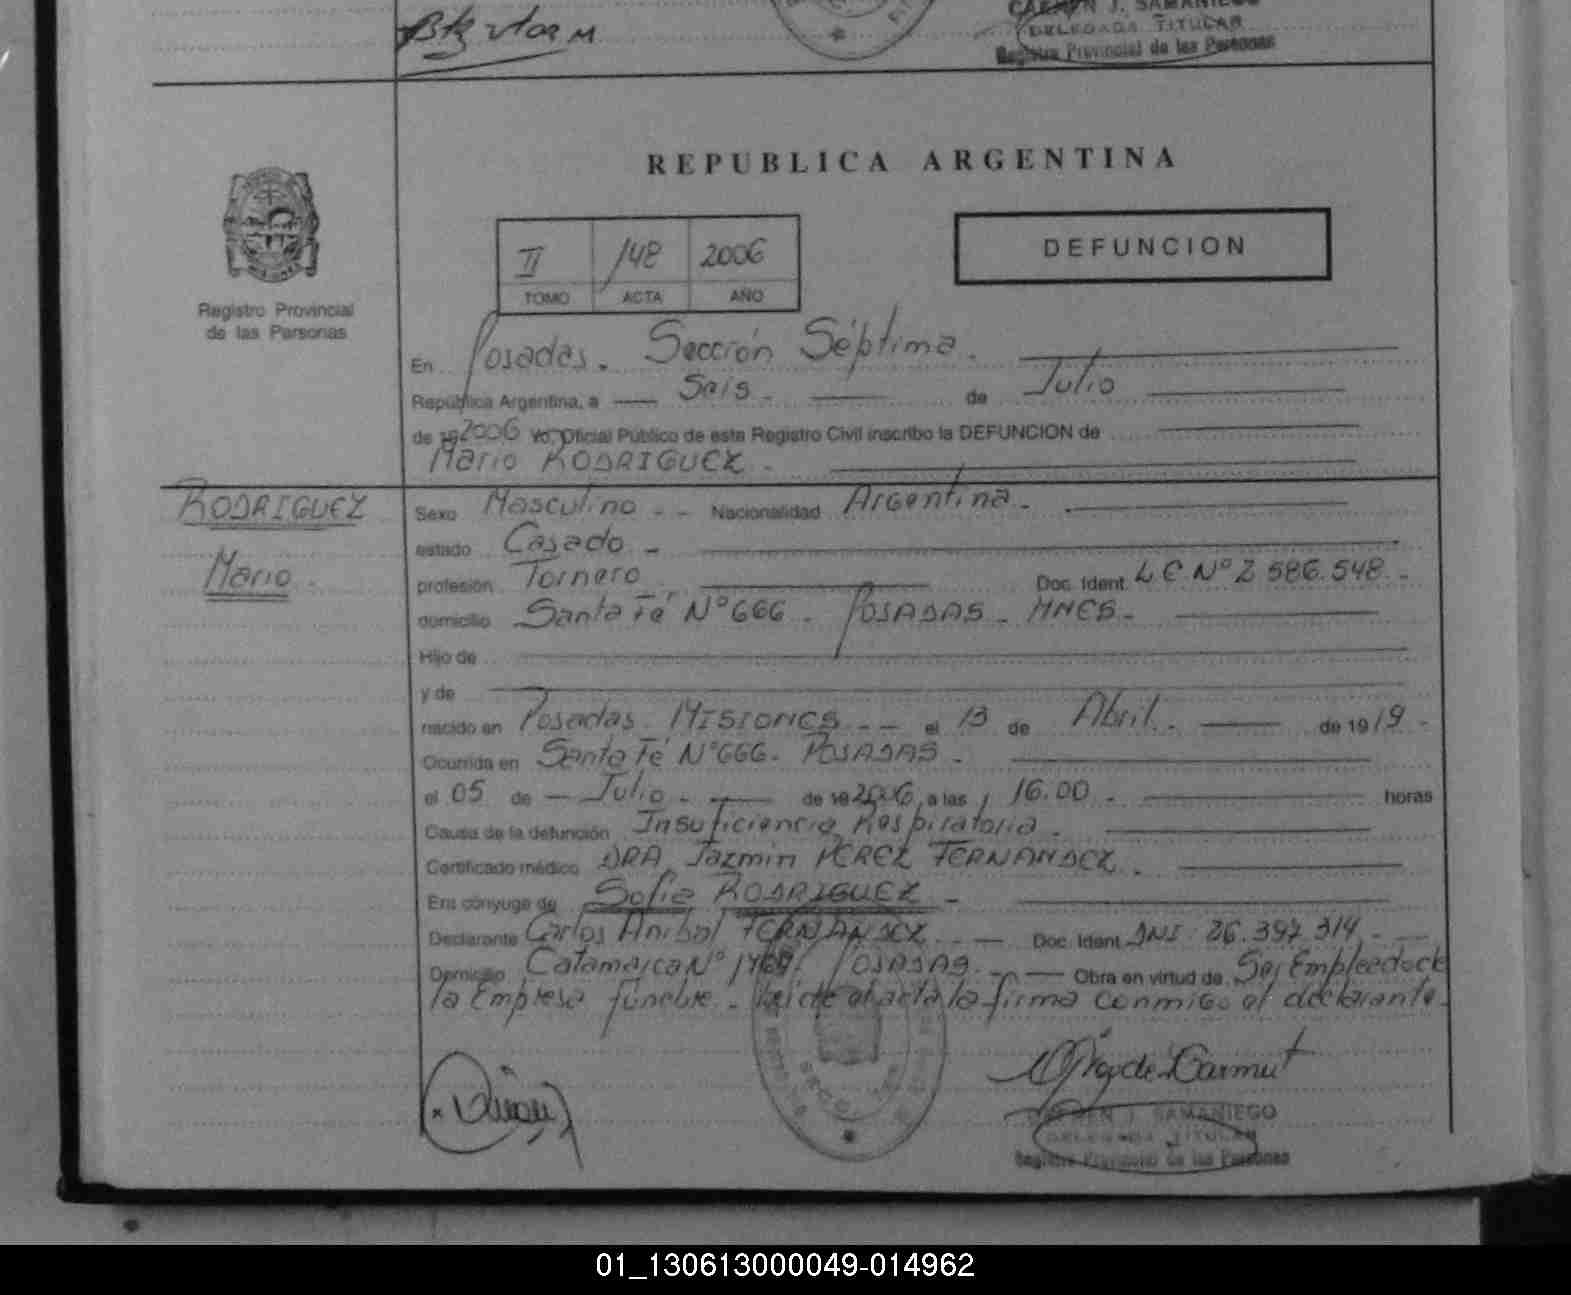 CARMEN J. SAMANIEGO
DELEGADA TITULAR
Registro Provincial de las Personas
REPUBLICA ARGENTINA
II 148 2006
TOMO ACTA AÑO
DEFUNCION
Registro Provincial
de las Personas
En Posadas. Sección Séptima.
República Argentina, a Seis. de Julio
de 19 2006 Yo, Oficial Público de este Registro Civil inscribo la DEFUNCION de
Mario RODRIGUEZ.
RODRIGUEZ
Mario.
Sexo Masculino -- Nacionalidad Argentina.
estado Casado -
profesión Tornero Doc. Ident. L.E. Nº 2 586.548.-
domicilio Santa Fé Nº 666. POSADAS. MNES.
Hijo de
y de
nacido en Posadas. MISIONES -- el 13 de Abril. de 1919-
Ocurrida en Santa Fé Nº 666. POSADAS.
el 05 de Julio. de 19 2006, a las 16.00. horas
Causa de la defunción Insuficiencia Respiratoria.
Certificado médico DRA. Jazmin PEREZ FERNANDEZ.
Era cónyuge de Sofia RODRIGUEZ -
Declarante Carlos Anibal FERNANDEZ Doc. Ident. DNI: 26.397.314.
Domicilio Catamarca Nº POSADAS. Obra en virtud de Ser Empleado de
la Empresa funebre. Leida el acta la firma conmigo el declarante.
CARMEN J. SAMANIEGO
DELEGADA TITULAR
Registro Provincial de las Personas
01_130613000049-014962